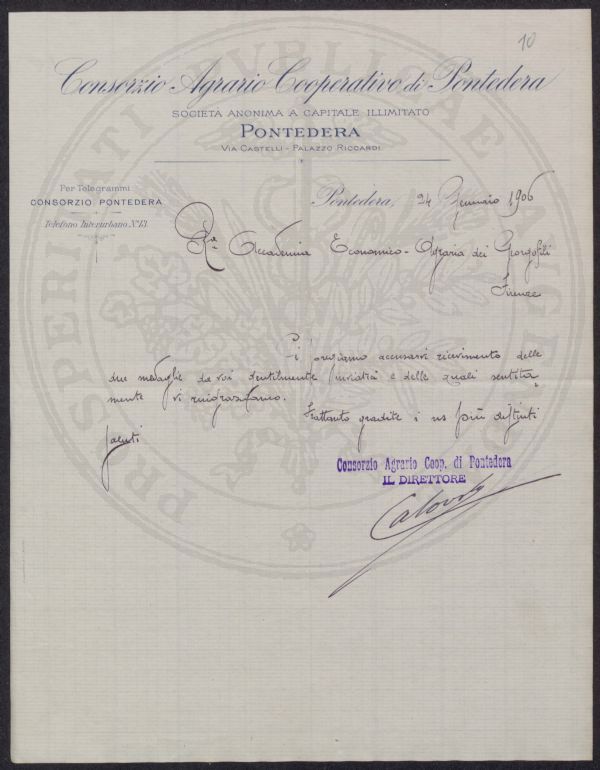 10
Consorzio Agrario Cooperativo di Pontedera
SOCIETÀ ANONIMA A CAPITALE ILLIMITATO
PONTEDERA
VIA CASTELLI - PALAZZO RICCARDI
Per Telegrammi
CONSORZIO PONTEDERA
Telefono Interurbano N.º 13.
Pontedera, 24 Gennaio 1906
Rª Accademia Economico-Agraria dei Georgofili
Firenze
Ci pregiamo accusarvi ricevimento delle
due medaglie da voi gentilmente inviateci e delle quali sentita=
mente vi ringraziamo.
Frattanto gradite i ns più distinti
saluti
Consorzio Agrario Coop. di Pontedera
IL DIRETTORE
PUBLICAE